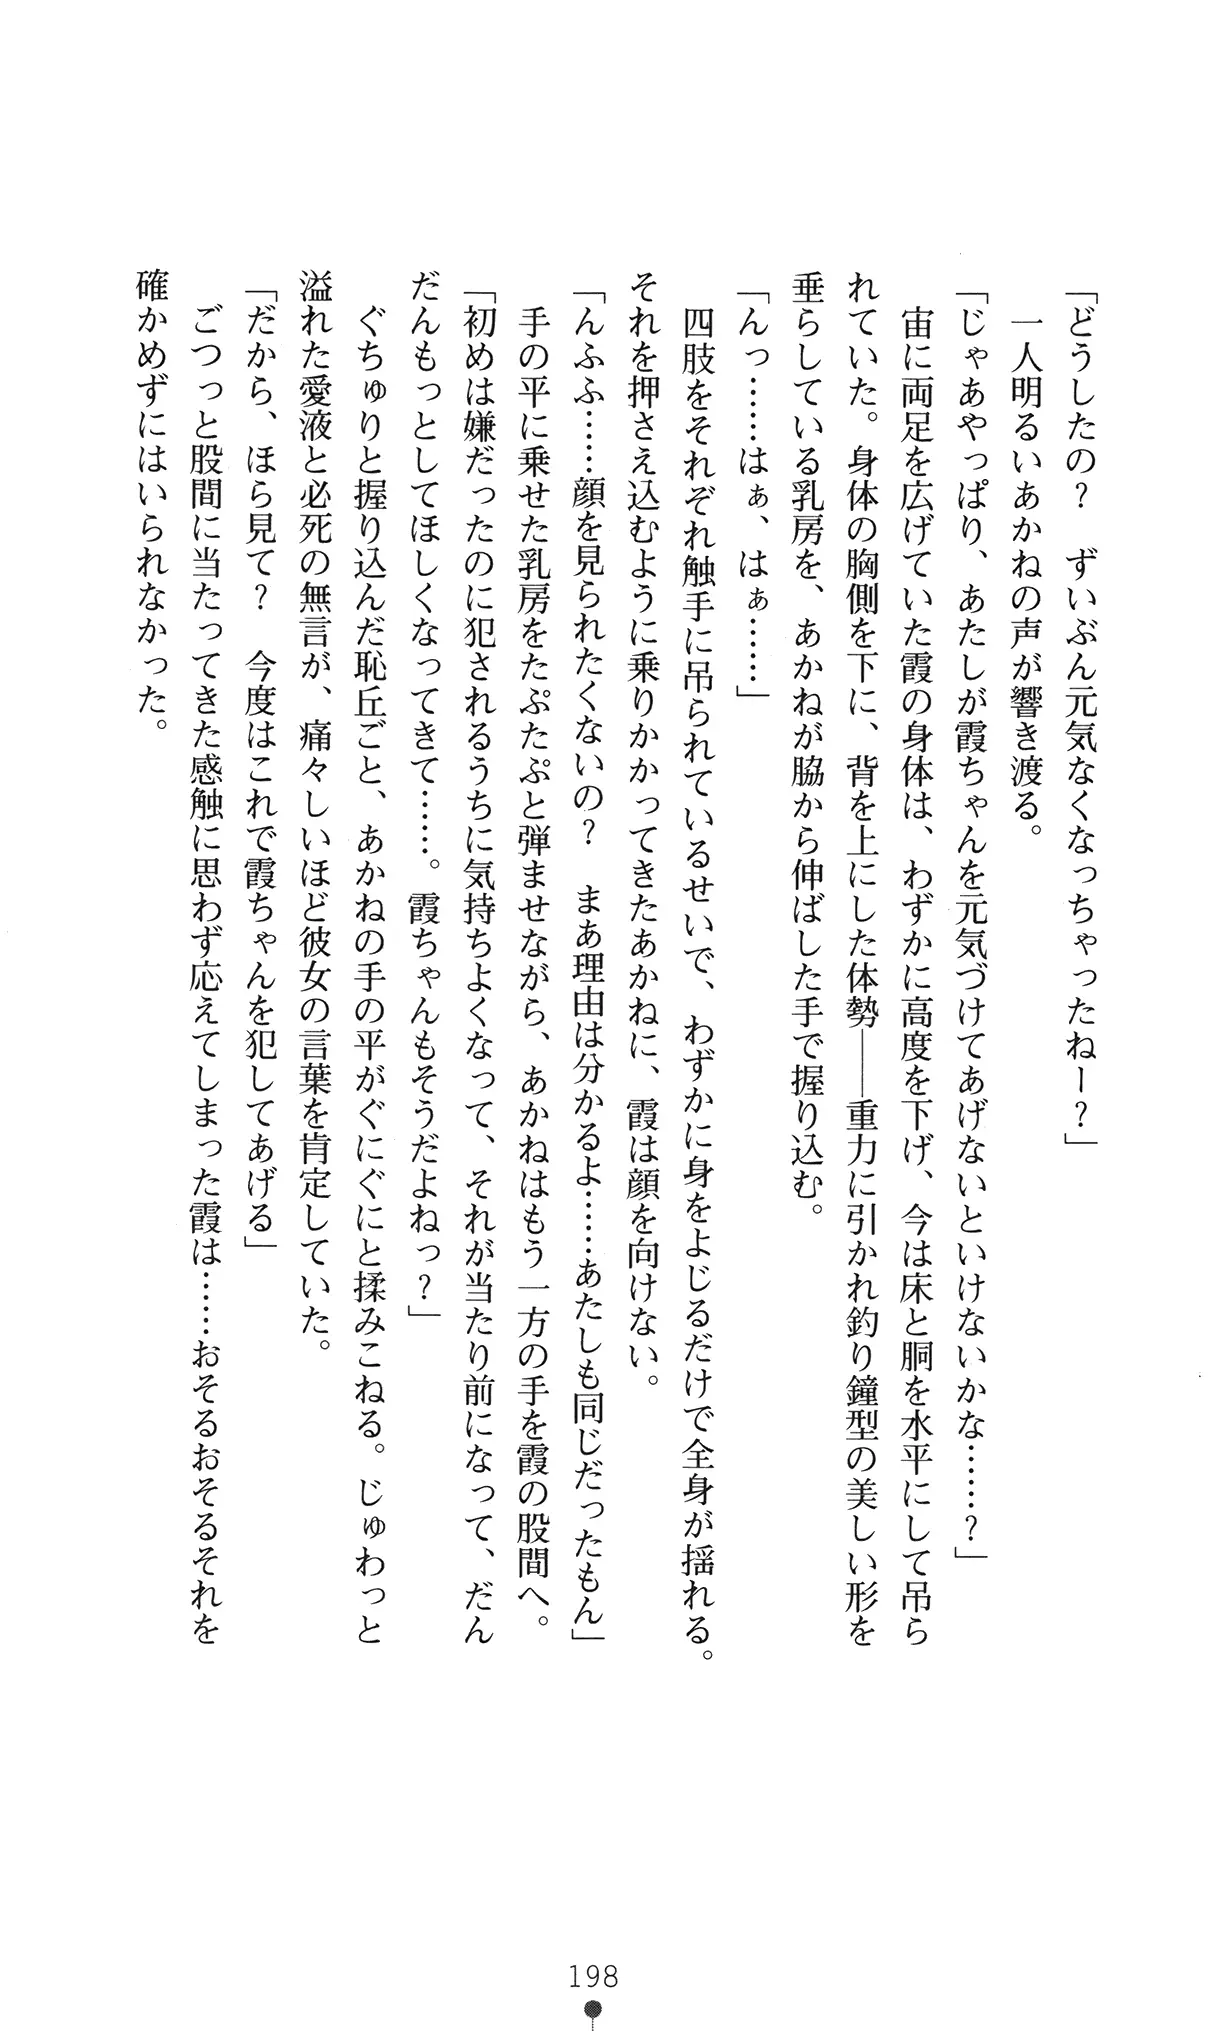 「どうしたの？　ずいぶん元気なくなっちゃったねー？」
　一人明るいあかねの声が響き渡る。
「じゃあやっぱり、あたしが霞ちゃんを元気づけてあげないといけないかな……？」
　宙に両足を広げていた霞の身体は、わずかに高度を下げ、今は床と胴を水平にして吊ら
れていた。身体の胸側を下に、背を上にした体勢――重力に引かれ釣り鐘型の美しい形を
垂らしている乳房を、あかねが脇から伸ばした手で握り込む。
「んっ……はぁ、はぁ……」
　四肢をそれぞれ触手に吊られているせいで、わずかに身をよじるだけで全身が揺れる。
それを押さえ込むように乗りかかってきたあかねに、霞は顔を向けない。
「んふふ……顔を見られたくないの？　まあ理由は分かるよ……あたしも同じだったもん」
　手の平に乗せた乳房をたぷたぷと弾ませながら、あかねはもう一方の手を霞の股間へ。
「初めは嫌だったのに犯されるうちに気持ちよくなって、それが当たり前になって、だん
だんもっとしてほしくなってきて……。霞ちゃんもそうだよねっ？」
　ぐちゅりと握り込んだ恥丘ごと、あかねの手の平がぐにぐにと揉みこねる。じゅわっと
溢れた愛液と必死の無言が、痛々しいほど彼女の言葉を肯定していた。
「だから、ほら見て？　今度はこれで霞ちゃんを犯してあげる」
　ごつっと股間に当たってきた感触に思わず応えてしまった霞は……おそるおそるそれを
確かめずにはいられなかった。
198